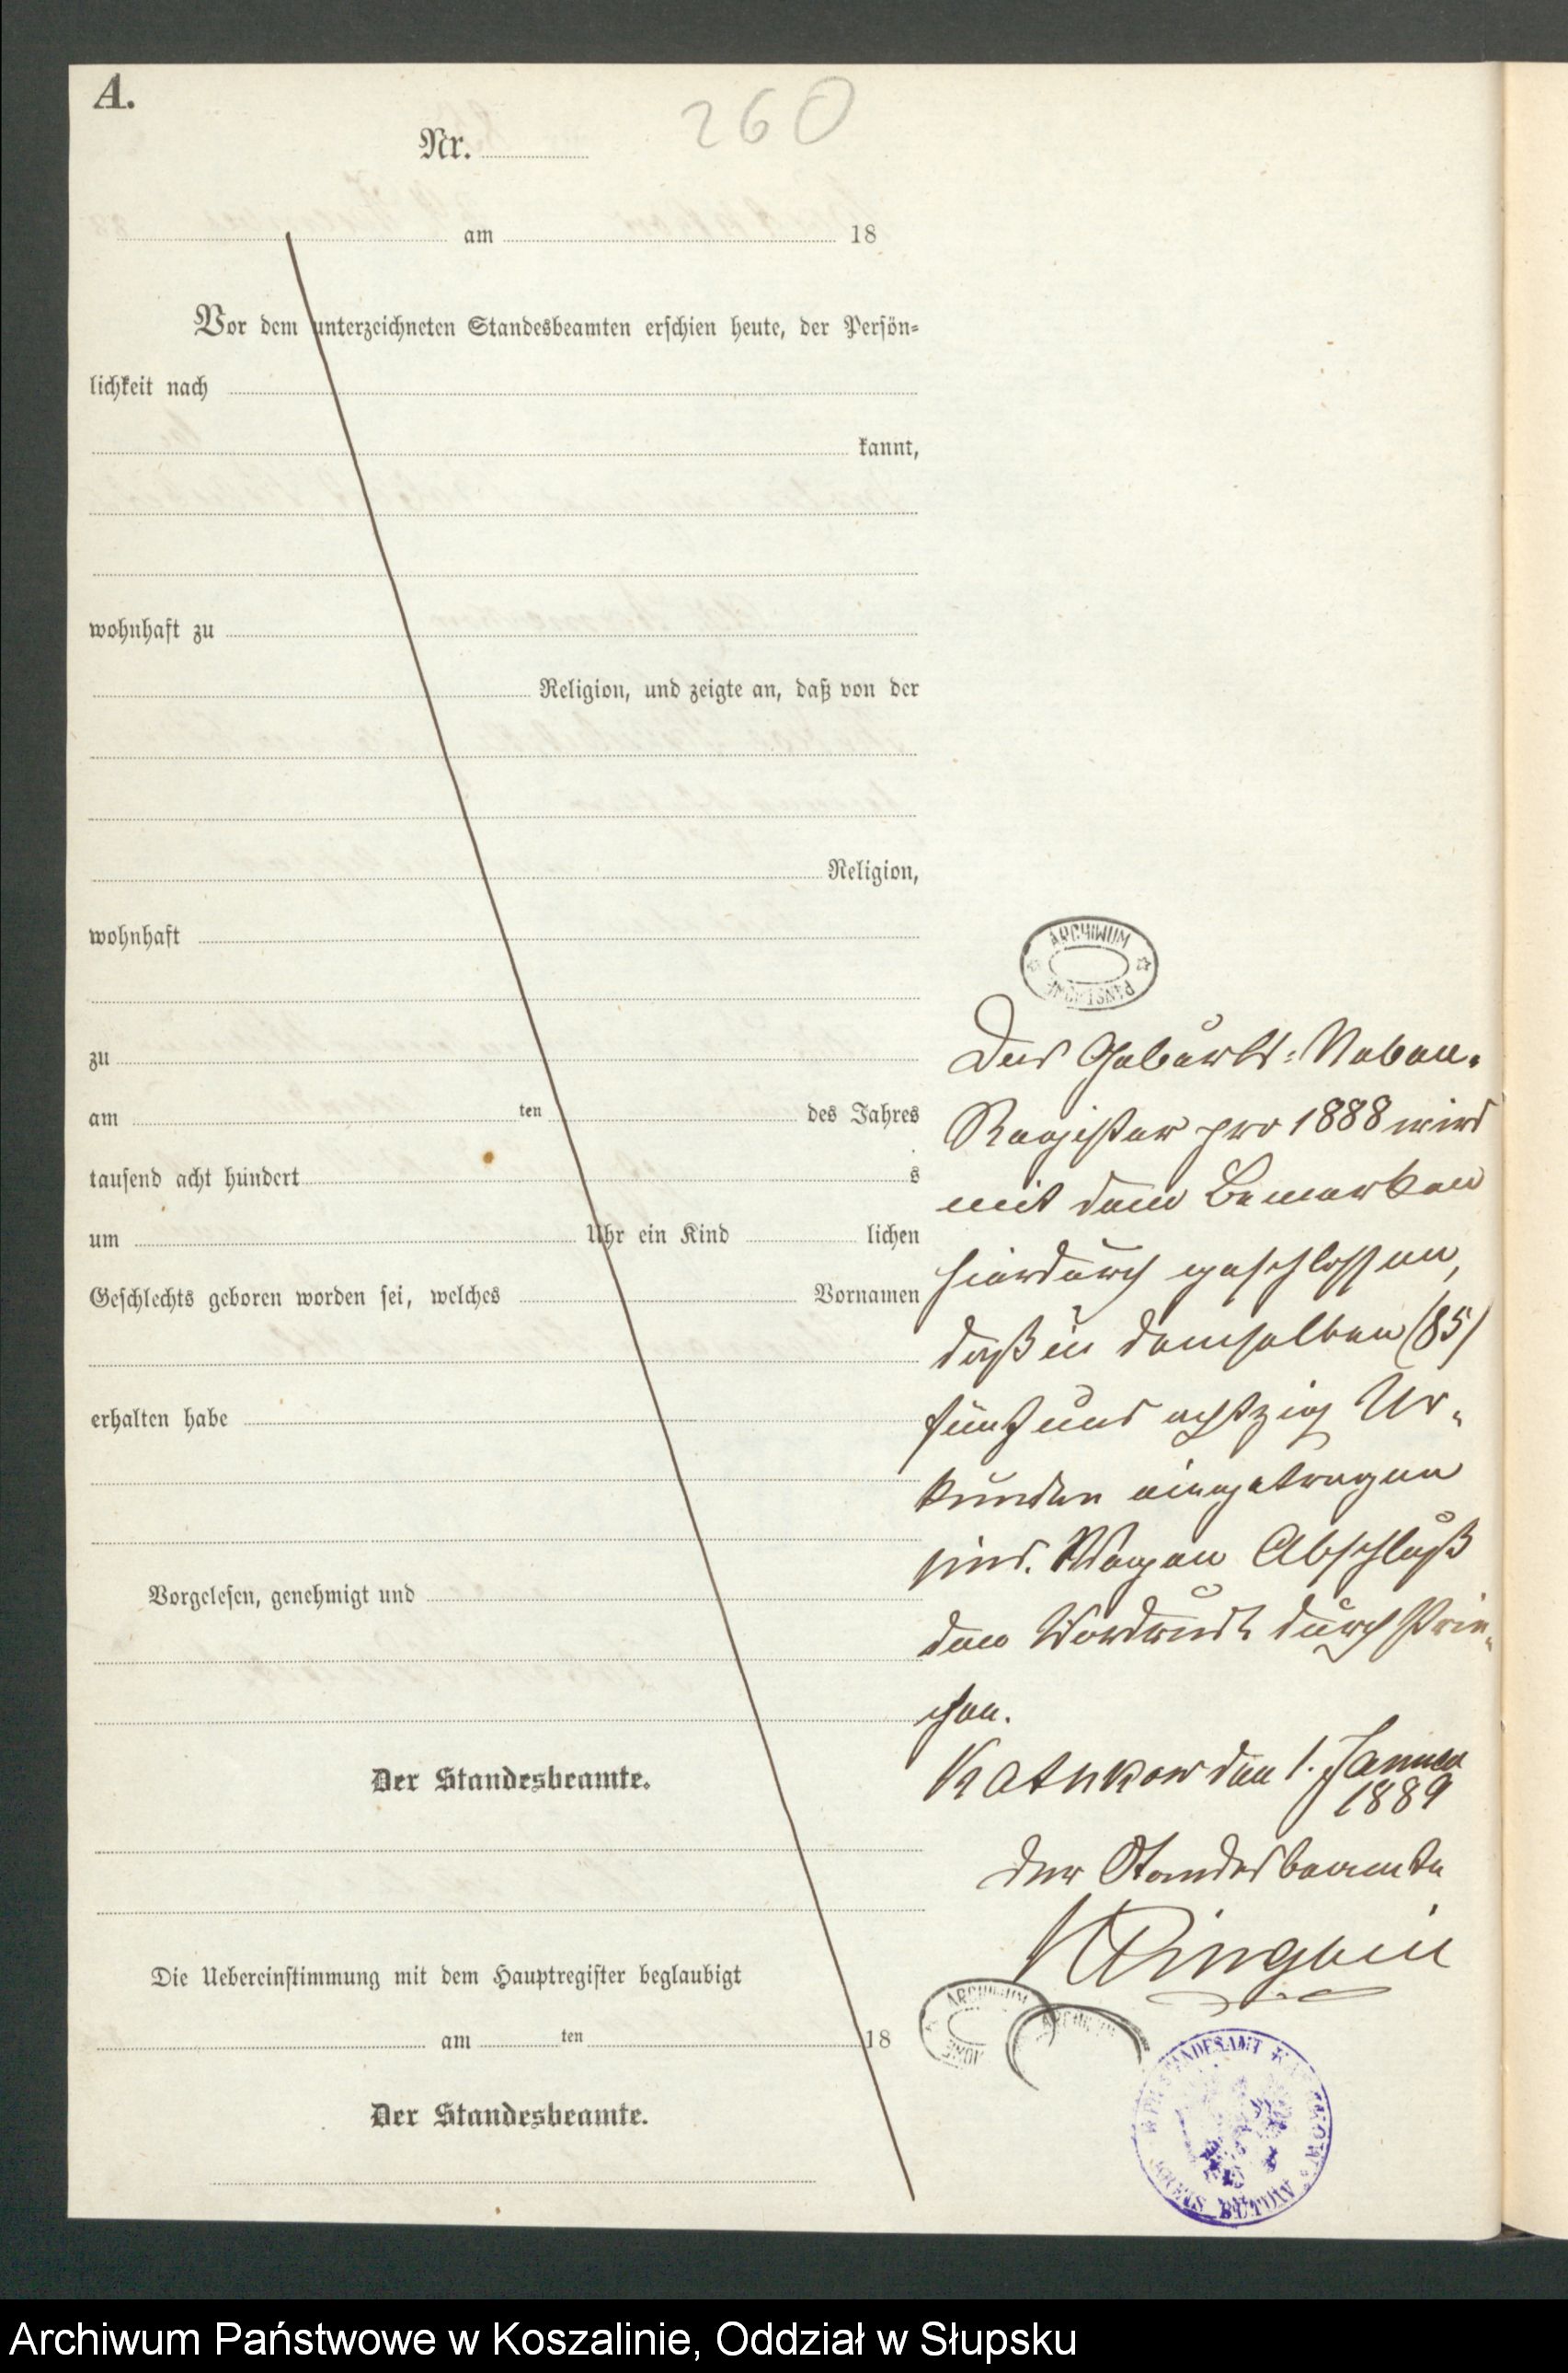 A.
Nr.
260
am 18
Vor dem unterzeichneten Standesbeamten erschien heute, der Persön=
lichkeit nach
kannt,
wohnhaft zu
Religion, und zeigte an, daß von der
Religion,
wohnhaft
zu
am ten des Jahres
tausend acht hundert s
um Uhr ein Kind lichen
Geschlechts geboren worden sei, welches Vornamen
erhalten habe
Vorgelesen, genehmigt und
Der Standesbeamte.
Die Uebereinstimmung mit dem Hauptregister beglaubigt
am ten 18
Der Standesbeamte.
ARCHIWUM
Das Geburts=Neben-
Register pro 1888 wird
mit dem Bemerken
hierdurch geschlossen,
daß in demselben (85)
fünf und achtzig Ur-
kunden eingetragen
sind. Wegen Abschluß
den Vordruck durch Strei-
chen.
Kathkow den 1. Januar
1889
Der Standesbeamte
ARCHIWUM
STANDESAMT
KREIS BÜTOW
Archiwum Państwowe w Koszalinie, Oddział w Słupsku